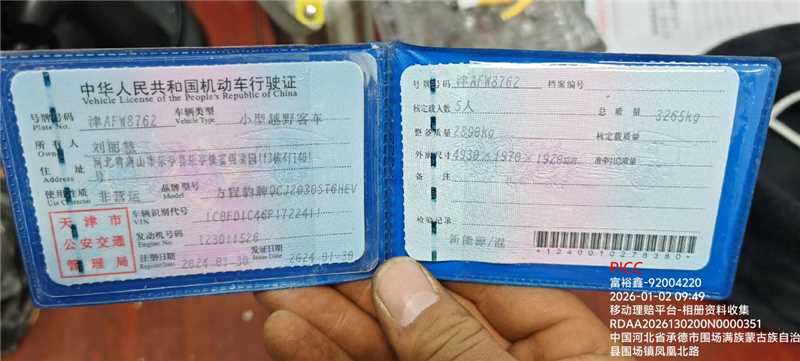 中华人民共和国机动车行驶证
Vehicle License of the People's Republic of China
号牌号码 津AFW8762 车辆类型 小型越野客车
Plate No. Vehicle Type
所有人
Owner
住址
使用性质 非营运 品牌型号
Use Character Model
天津市
公安交通
管理局
车辆识别代号
VIN
发动机号码 123011526
Engine No.
注册日期 2024-01-30 发证日期 2024-01-30
Register Date Issue Date
号牌号码 津AFW8762 档案编号
核定载人数 5人 总质量 3265kg
整备质量 2890kg 核定载质量
外廓尺寸 4930×1970×1920mm 准牵引总质量
备注
检验记录
新能源/混
*1240010278380*
PICC
富裕鑫-92004220
2026-01-02 09:49
移动理赔平台-相册资料收集
RDAA2026130200N0000351
中国河北省承德市围场满族蒙古族自治
县围场镇凤凰北路